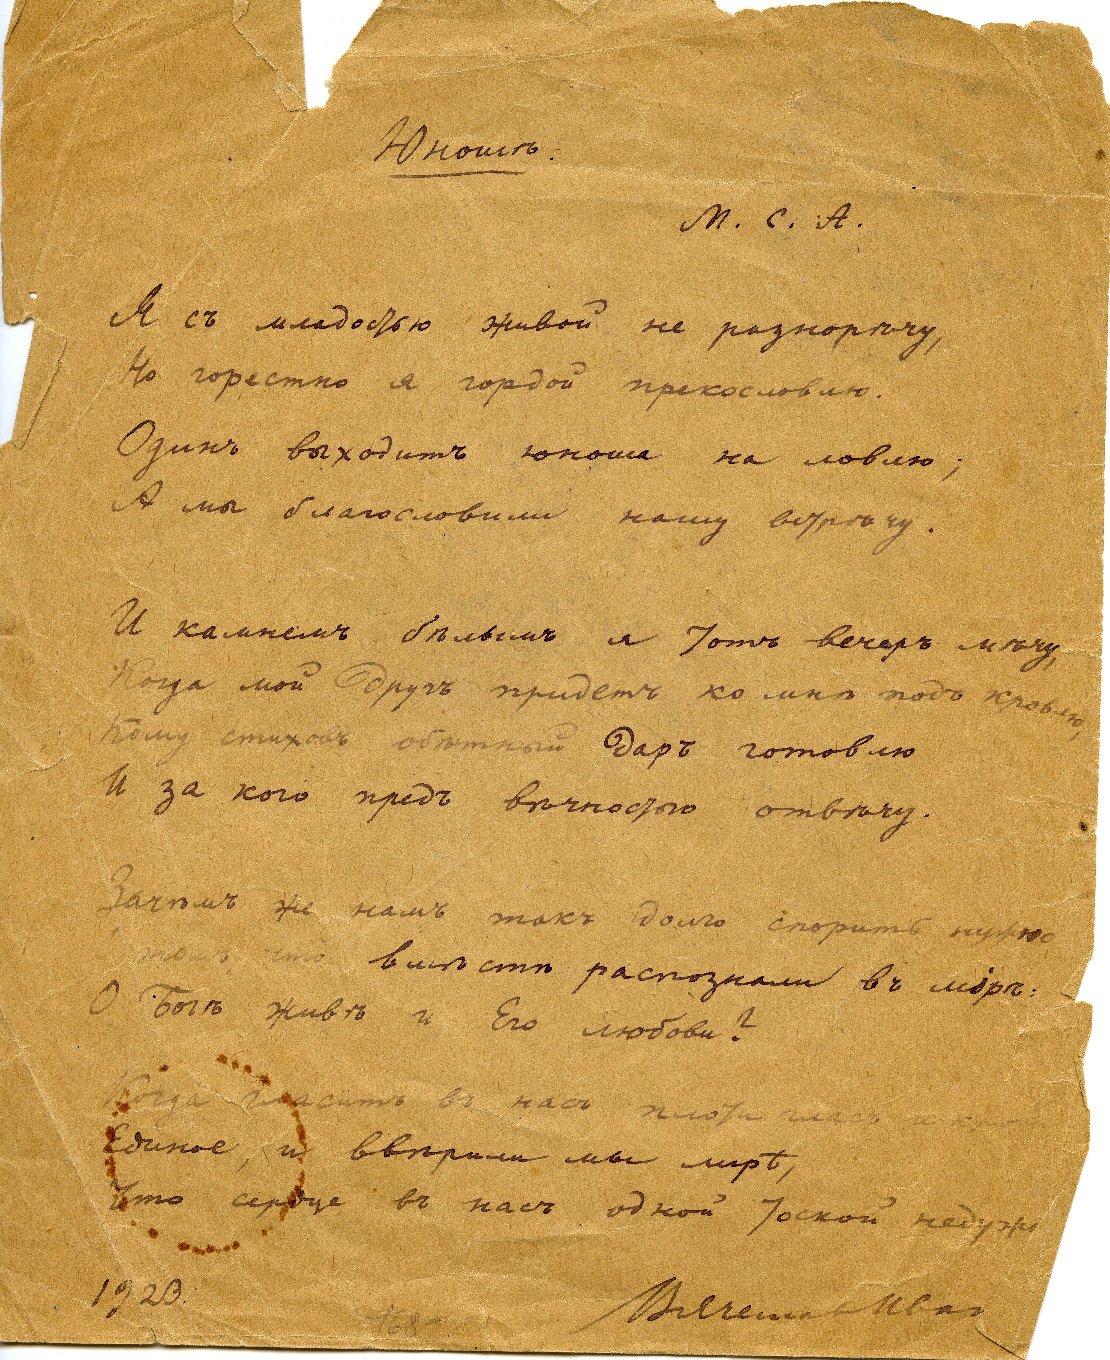 Юношѣ.
М. С. А.
Я съ младостью живой не разнорѣчу,
Но горестно я гордой прекословлю.
Одинъ выходитъ юноша на ловлю;
А мы благословили нашу встрѣчу.
И камнемъ бѣлымъ я тотъ вечеръ мѣчу,
Когда мой другъ придетъ ко мнѣ подъ кровлю,
Кому стиховъ обѣтный даръ готовлю
И за кого предъ вѣчностью отвѣчу.
Зачѣмъ же намъ такъ долго спорить нужно
томъ, что вмѣстѣ распознали въ мірѣ:
О Богѣ живѣ и Его любови?
Когда гласитъ въ насъ плоти гласъ и
Единое, и ввѣрили мы лирѣ,
Что сердце въ насъ одной тоской недужн
1923.
Вячеслав Иван